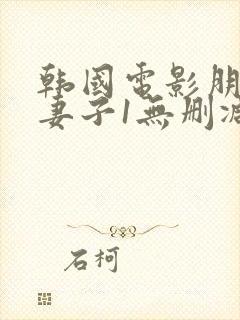 韩國電影朋
妻子1無删
石柯